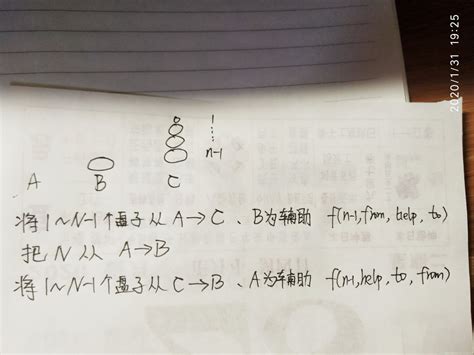 2020/1/31 19:25
1
n-1
A B C
将1~N-1个盘子从A→C、B为辅助 f(n-1,from,help,to)
把N从A→B
将1~N-1个盘子从C→B、A为辅助 f(n-1,help,to,from)